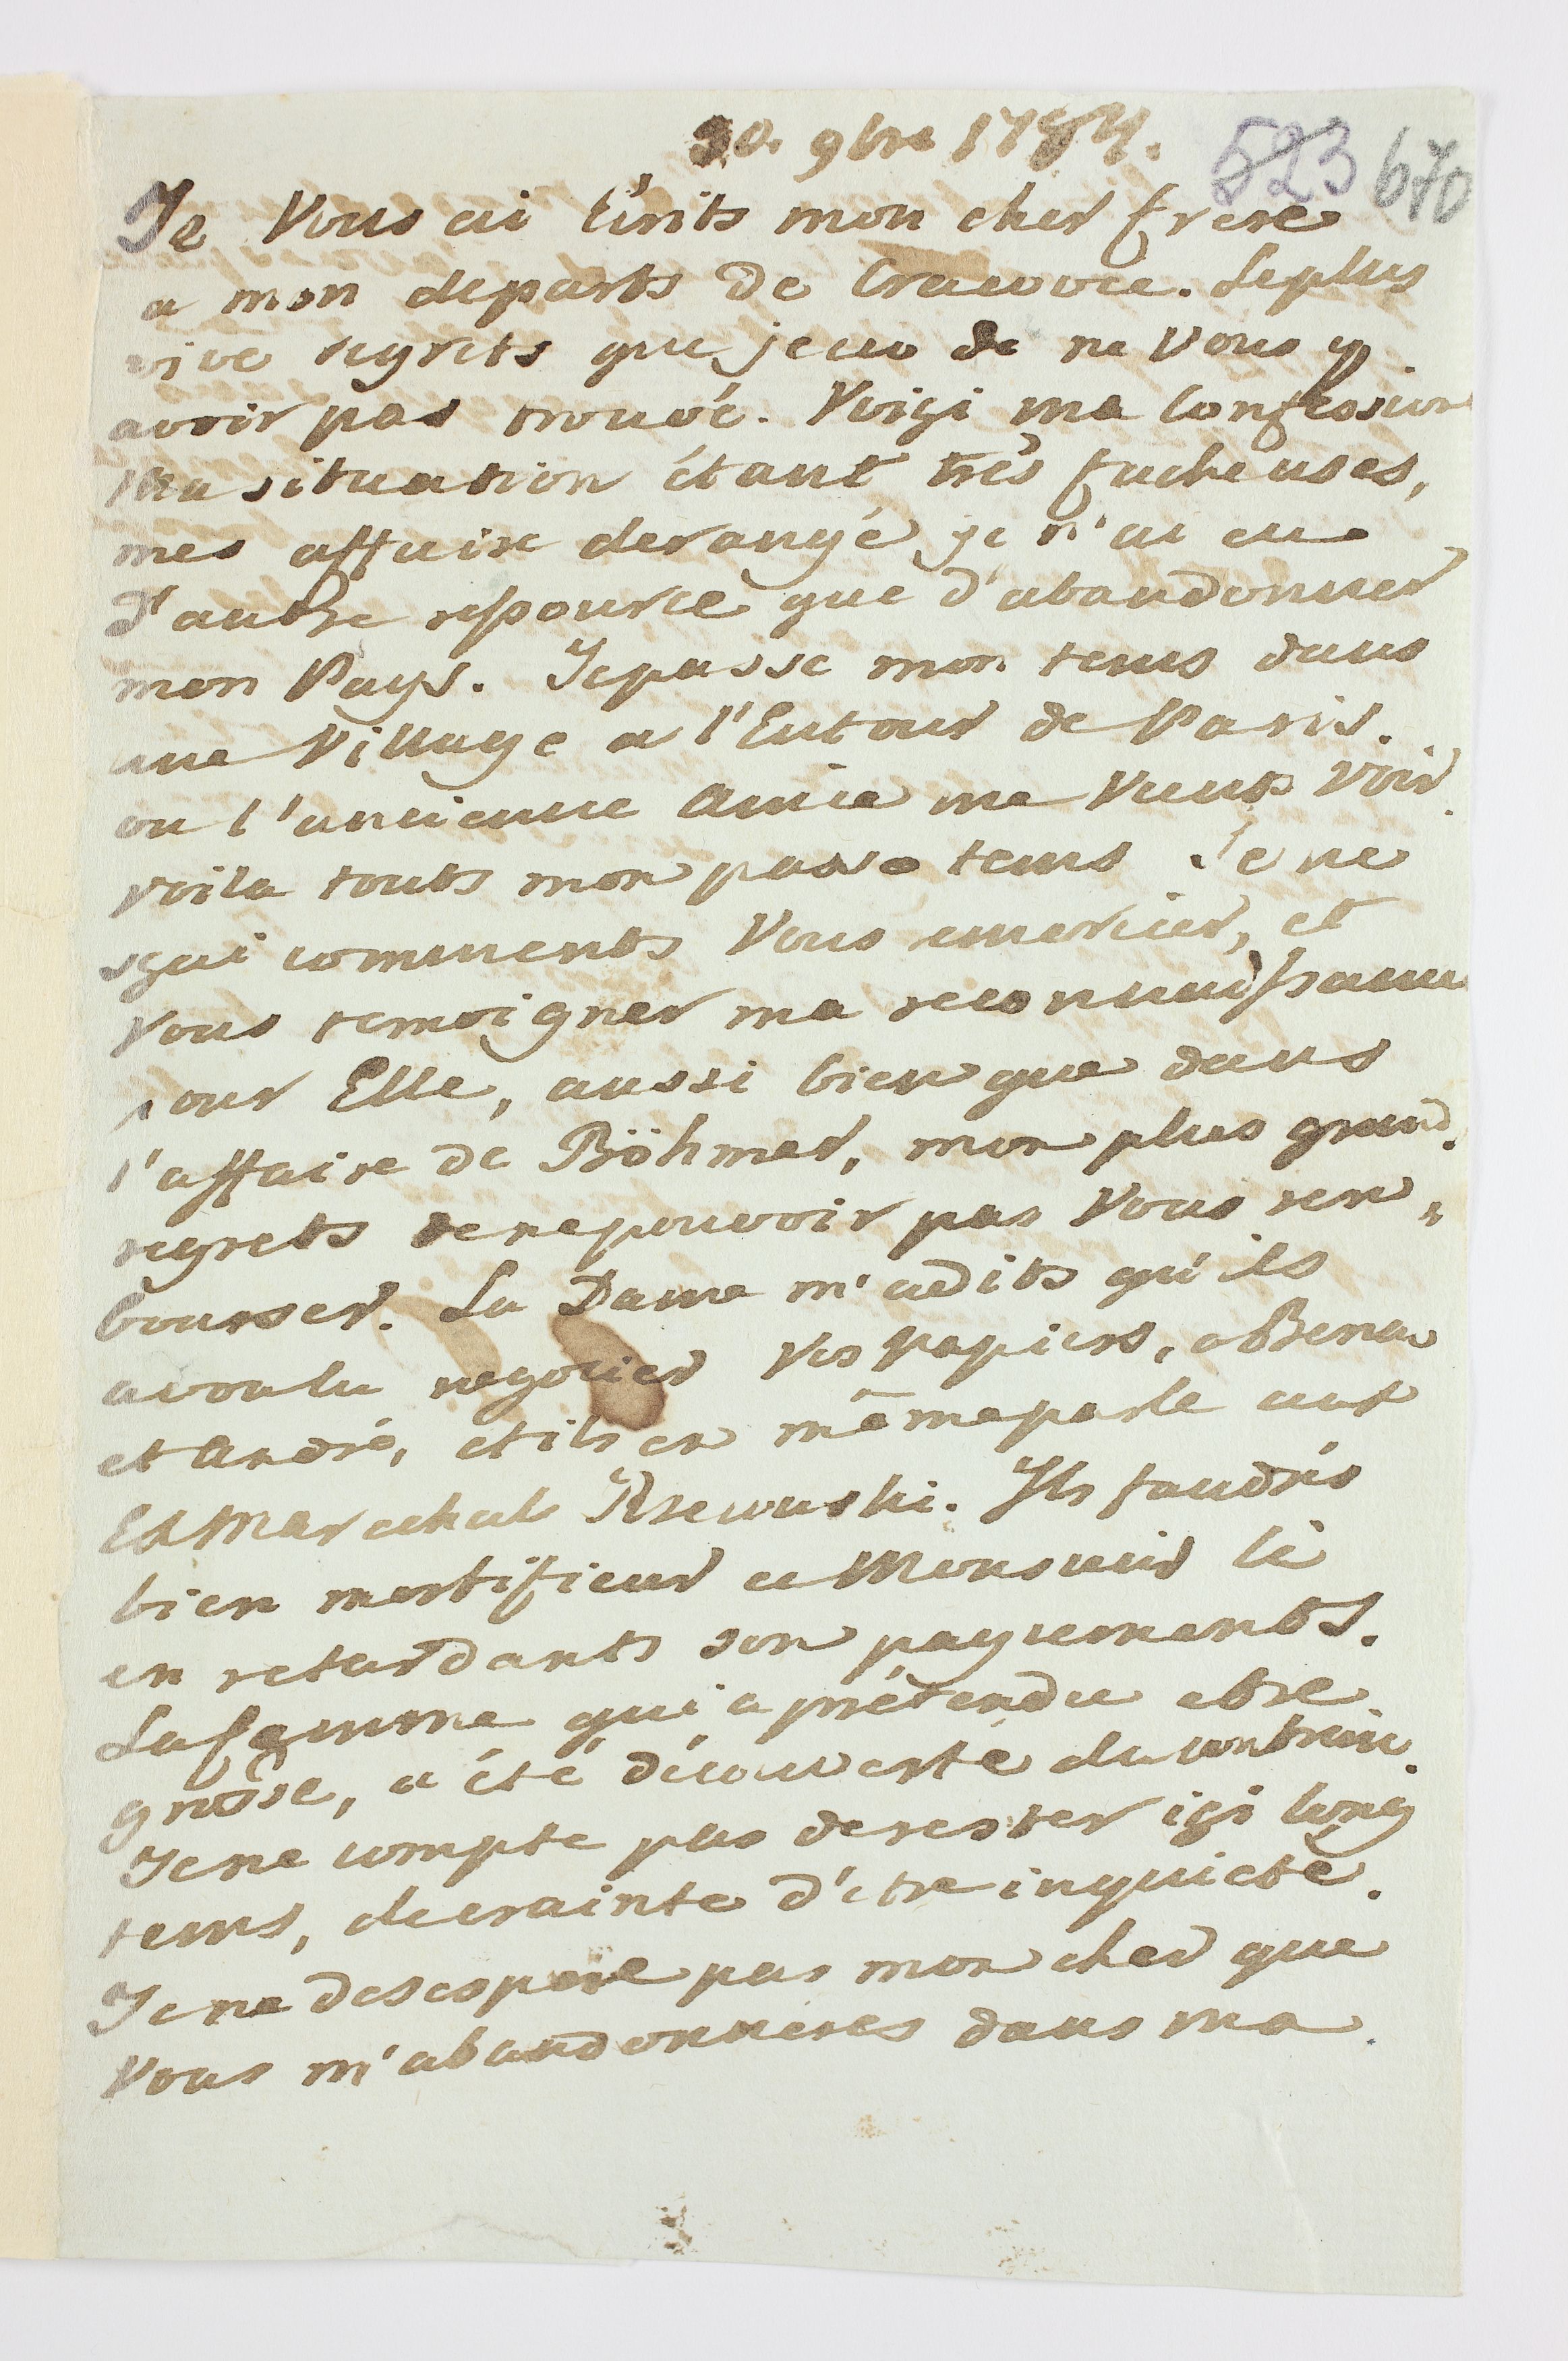 30. 9bre 1784.
523 670
Je Vous ai Ecrits mon cher frere
a mon departs de Cracovie. Le plus
vive regrets que jeus de ne Vous y
avoir pas trouvé. Voiçi ma Confession
Ma situation étant très facheuses,
mes affaire derangé je n'ai eue
d'autre ressource que d'abandonner
mon Pays. Je passe mon tems dans
une Village a l'Entour de Paris.
ou l'ancienne Amie me Vients Voir
voila touts mon passe tems Je ne
sçai comments Vous remercier, et
Vous temoigner ma reconnaissance
pour Elle, aussi bien que dans
l'affaire de Böhmer, mon plus grand
regrets de ne pouvoir pas Vous rem„
bourser. La Dame m'a dits qu'ils
a voulu negocier Vos papiers, a Bena
et André, et ils en même parle aux
Et Marechals Rzewuski. Ils faudrés
bien mortifieur ce Monsieur là
en retardants son payements.
La femme qui a prétendu etre
grosse, a été découverte du contraire.
Je ne compte pas de rester içi long
tems, de crainte d'etre inquieté.
Je ne desespere pas mon cher que
Vous m'abandonneres dans ma